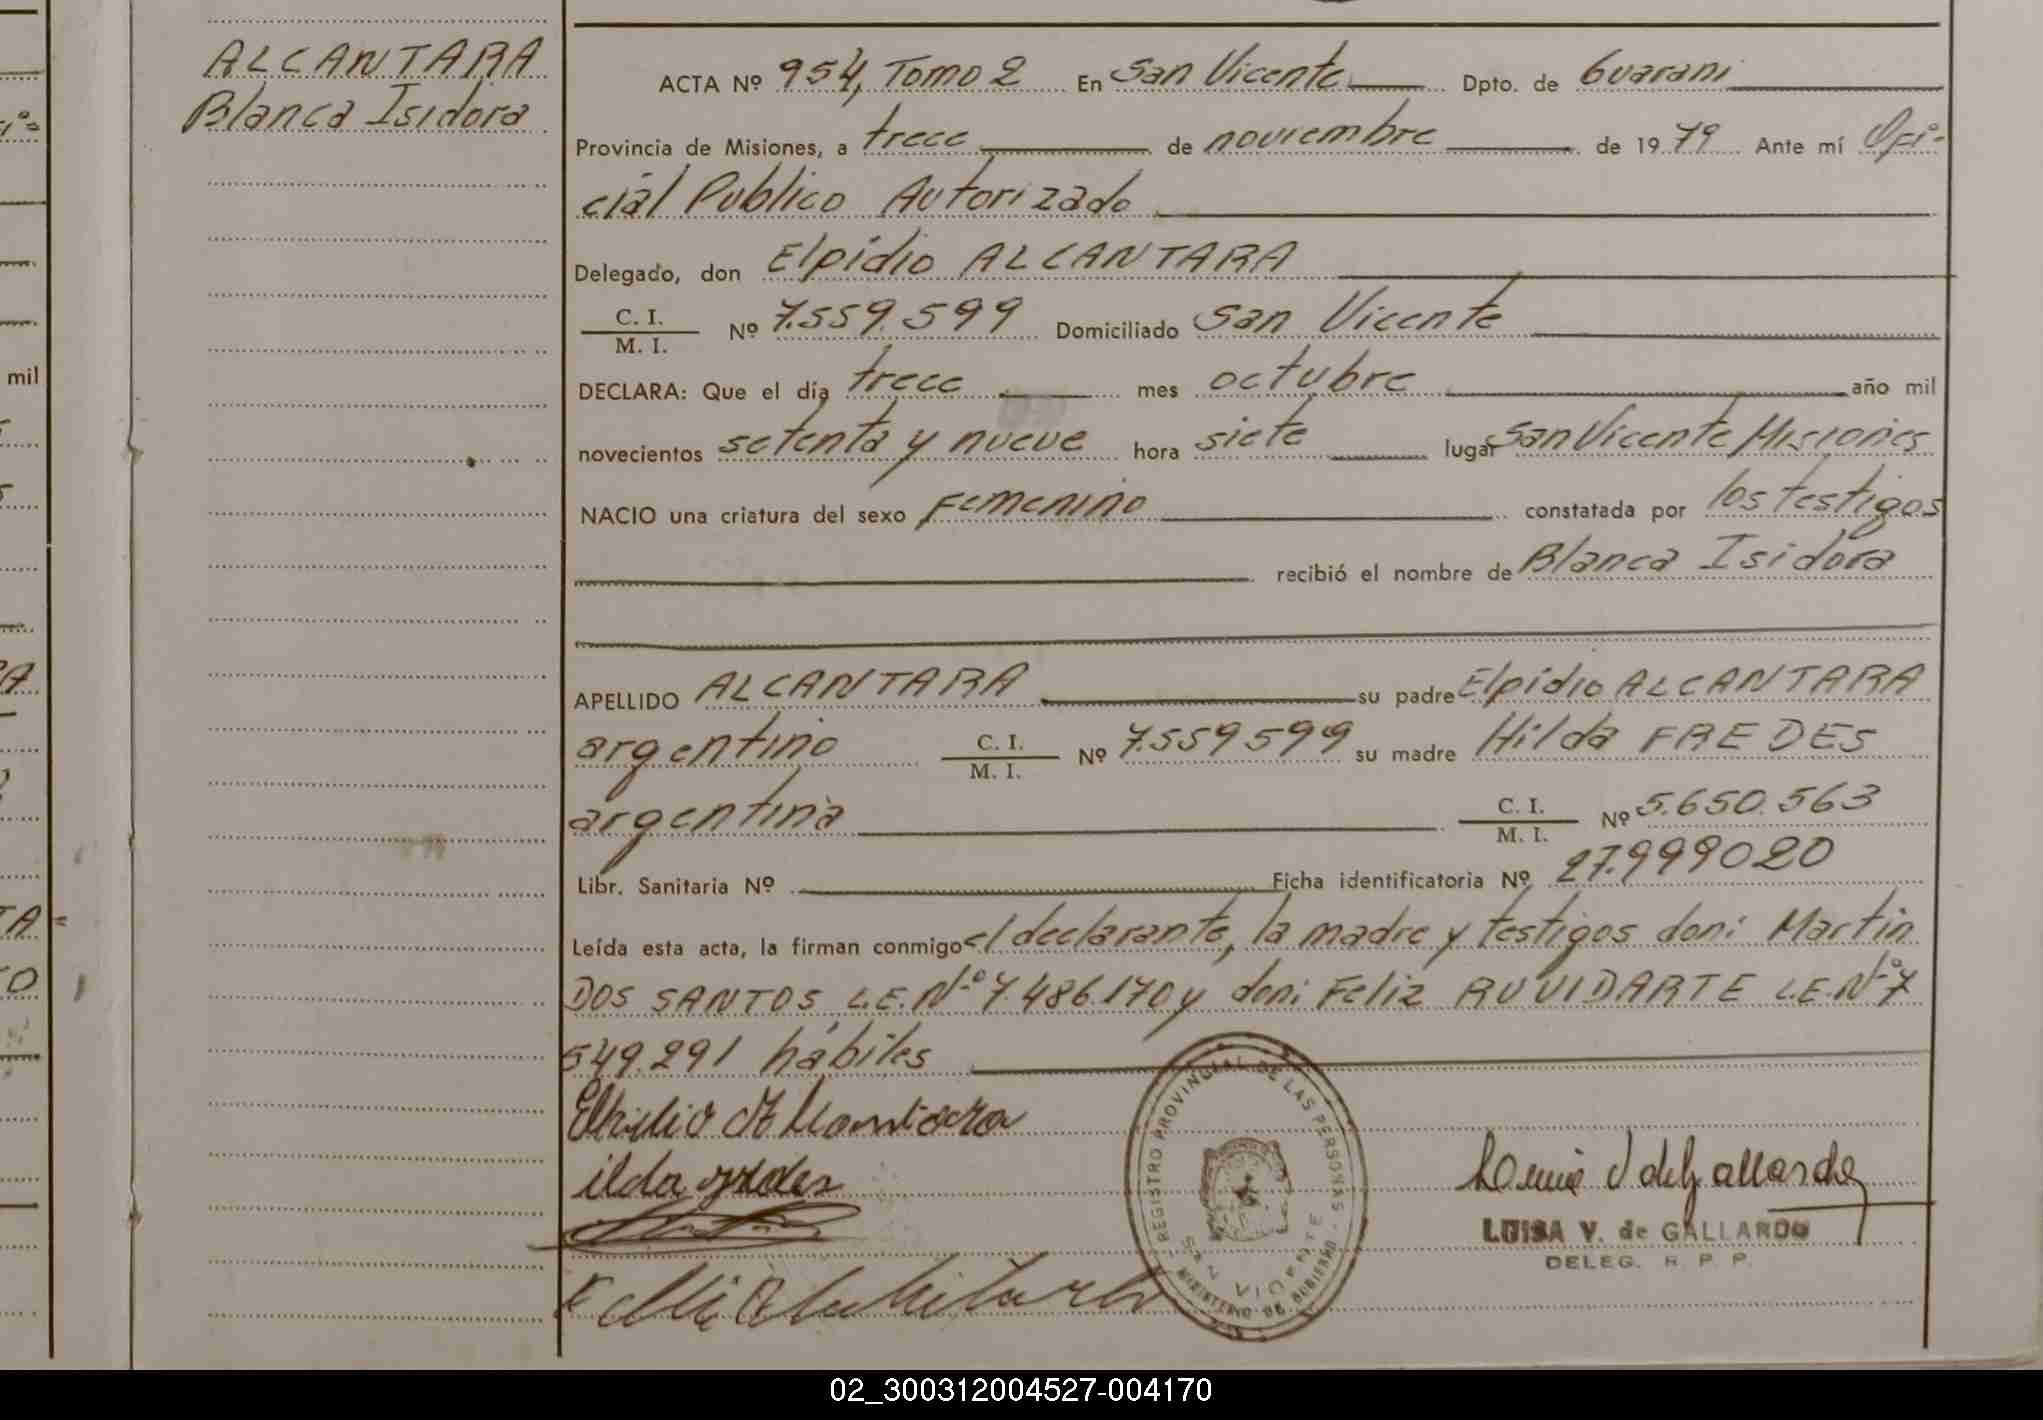 ALCANTARA
Blanca Isidora
ACTA Nº 954, Tomo 2 En San Vicente Dpto. de Guarani
Provincia de Misiones, a trece de noviembre de 1979 Ante mí Ofi-
cial Publico Autorizado
Delegado, don Elpidio ALCANTARA
C. I.
M. I. Nº 7.559.599 Domiciliado San Vicente
DECLARA: Que el día trece mes octubre año mil
novecientos setenta y nueve hora siete lugar San Vicente Misiones
NACIO una criatura del sexo Femenino constatada por los testigos
recibió el nombre de Blanca Isidora
APELLIDO ALCANTARA su padre Elpidio ALCANTARA
argentino C. I. M. I. Nº 7.559599 su madre Hilda FREDES
argentina C. I. M. I. Nº 5.650.563
Libr. Sanitaria Nº Ficha identificatoria Nº 27.999020
Leída esta acta, la firman conmigo el declarante, la madre y testigos don: Martin
DOS SANTOS L.E. Nº 7.486.170 y don: Feliz RUVIDARTE L.E. Nº 7
549.291 hábiles
REGISTRO PROVINCIAL DE LAS PERSONAS
SAN VICENTE
MINISTERIO DE GOBIERNO
LUISA V. de GALLARDO
DELEG. R. P. P.
mil
02_300312004527-004170